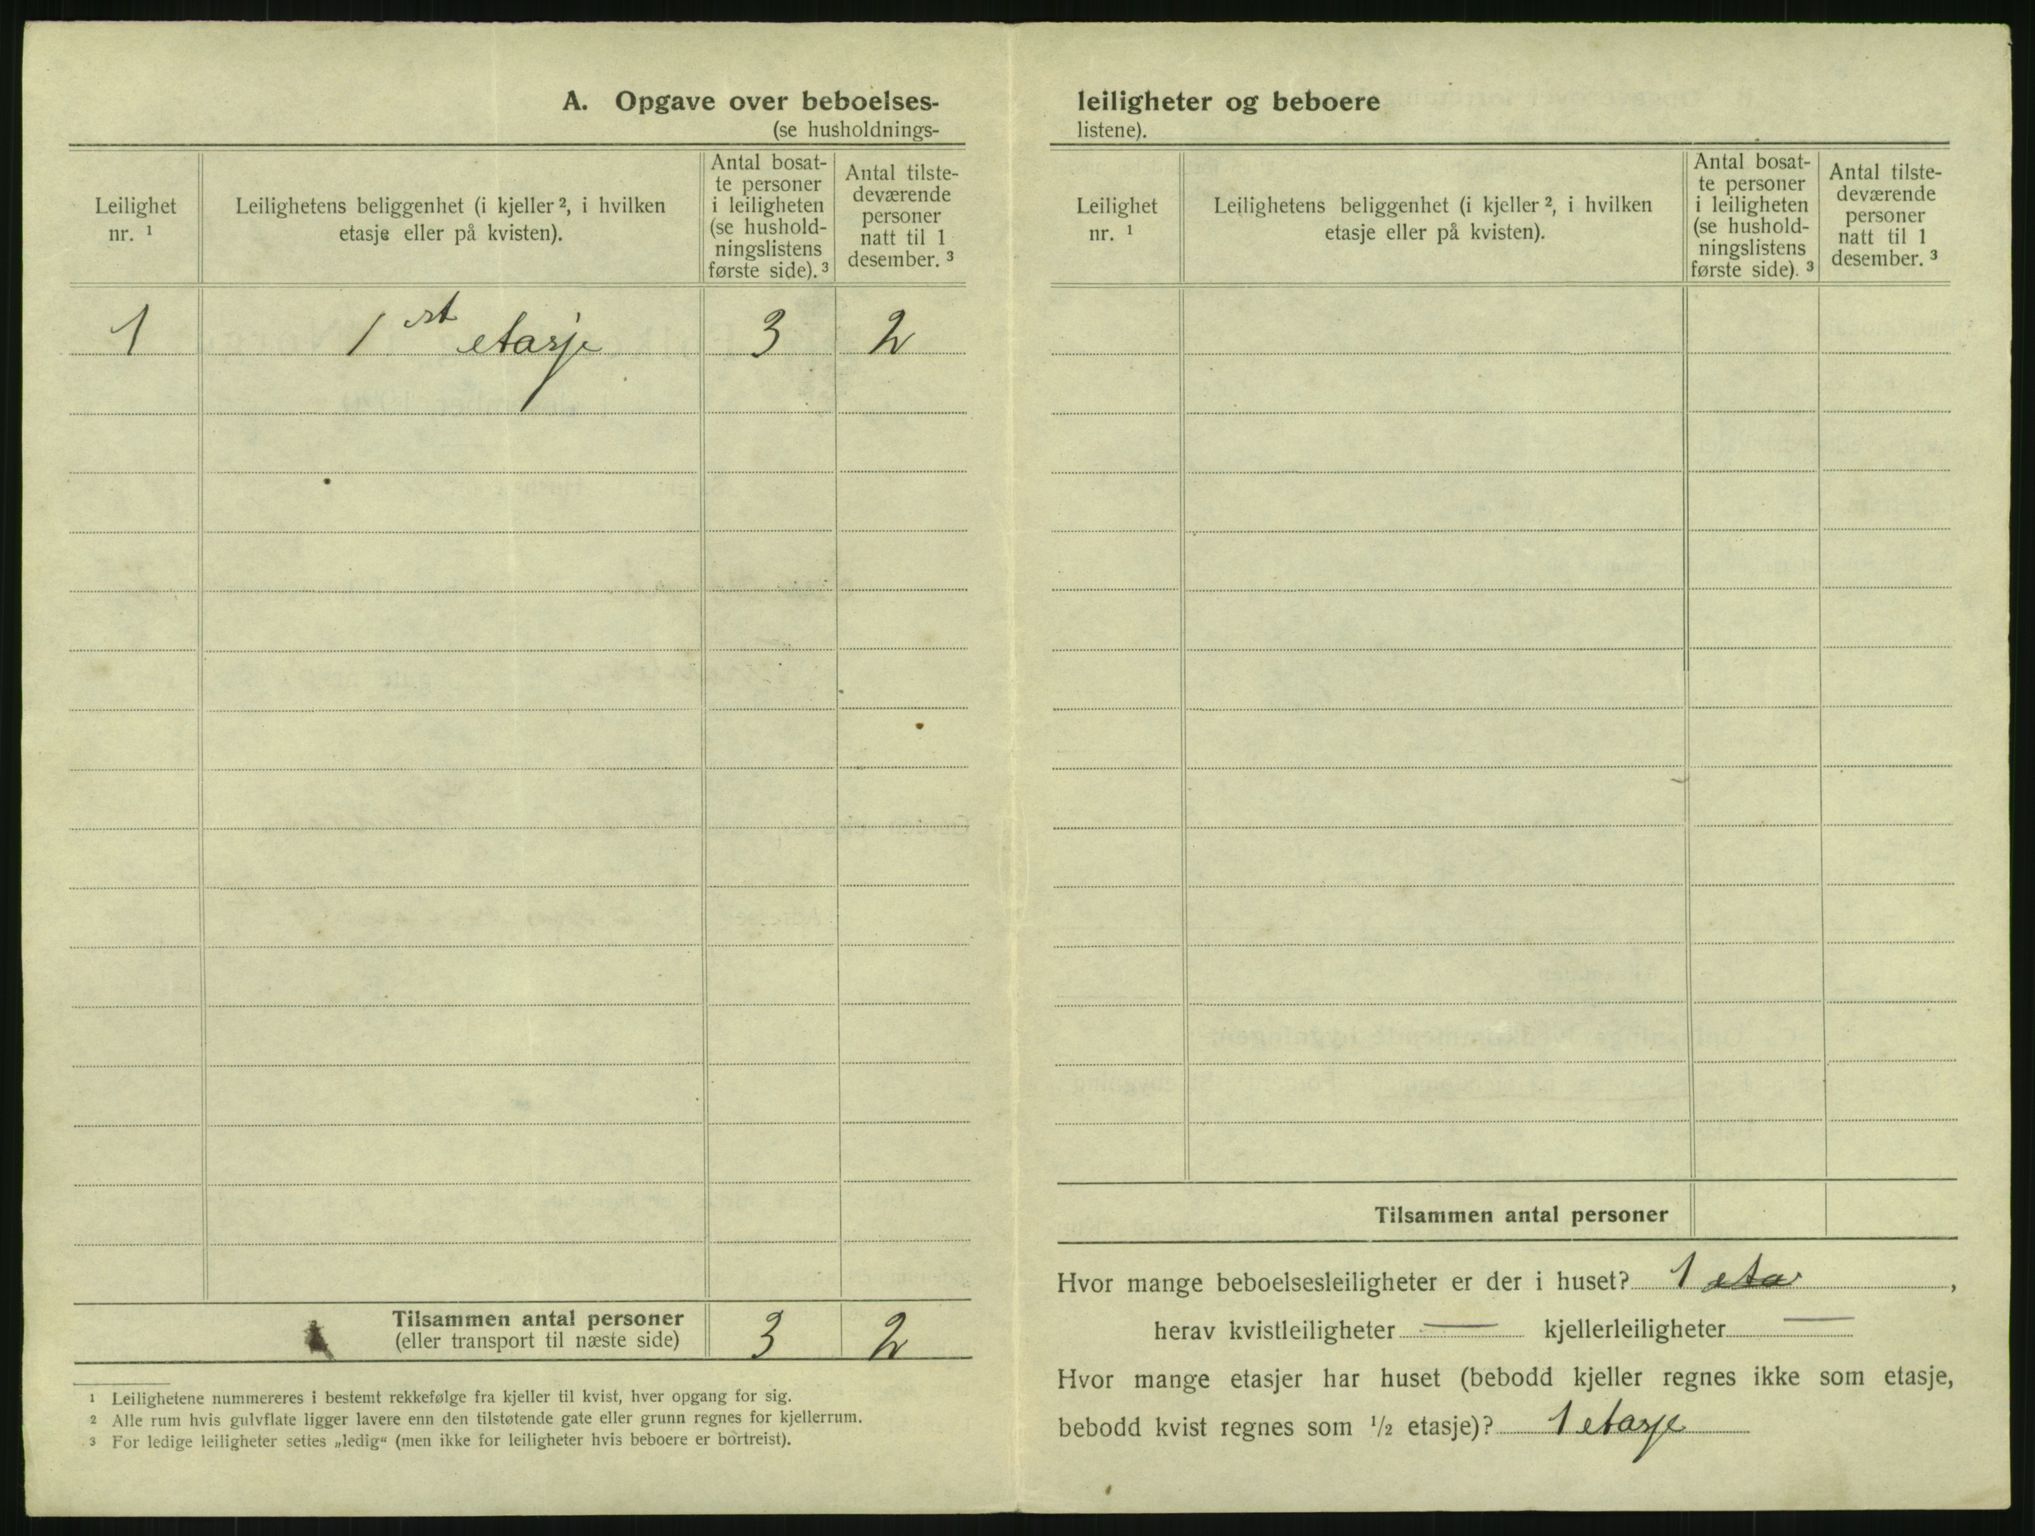 A. Opgave over beboelses-
(se husholdnings-
Leilighet
nr. ¹
Leilighetens beliggenhet (i kjeller ², i hvilken
etasje eller på kvisten).
Antal bosat-
te personer
i leiligheten
(se hushold-
ningslistens
første side). ³
Antal tilste-
deværende
personer
natt til 1
desember. ³
1 1st etasje 3 2
Tilsammen antal personer
(eller transport til næste side) 3 2
¹ Leilighetene nummereres i bestemt rekkefølge fra kjeller til kvist, hver opgang for sig.
² Alle rum hvis gulvflate ligger lavere enn den tilstøtende gate eller grunn regnes for kjellerrum.
³ For ledige leiligheter settes „ledig“ (men ikke for leiligheter hvis beboere er bortreist).
leiligheter og beboere
listene).
Leilighet
nr. ¹
Leilighetens beliggenhet (i kjeller ², i hvilken
etasje eller på kvisten).
Antal bosat-
te personer
i leiligheten
(se hushold-
ningslistens
første side). ³
Antal tilste-
deværende
personer
natt til 1
desember. ³
Tilsammen antal personer
Hvor mange beboelsesleiligheter er der i huset? 1 eta ,
herav kvistleiligheter — kjellerleiligheter —
Hvor mange etasjer har huset (bebodd kjeller regnes ikke som etasje,
bebodd kvist regnes som ½ etasje)? 1 etasje